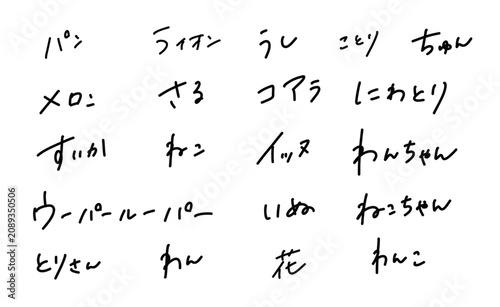 パン ライオン うし ことり ちゅん
メロン さる コアラ にわとり
すいか ねこ イッヌ わんちゃん
ウーパールーパー いぬ ねこちゃん
とりさん わん 花 わんこ
Adobe Stock | #2089350506